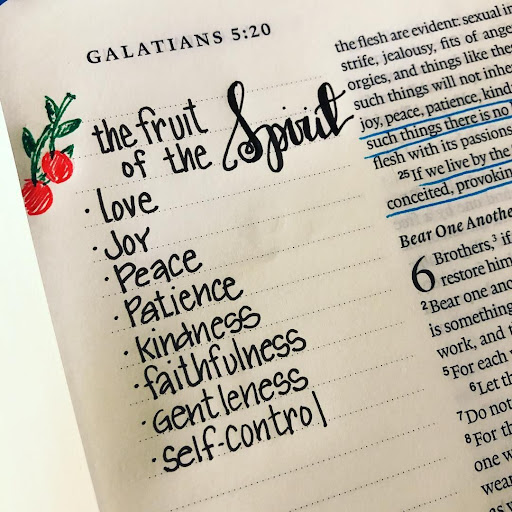 GALATIANS 5:20
the fruit
of the Spirit
· Love
· Joy
· Peace
· Patience
· Kindness
· faithfulness
· Gentleness
· self-control
the flesh are evident: sexual
strife, jealousy, fits of
orgies, and things like
such things will not
joy, peace, patience,
such things there is no
flesh with its passions
25 If we live by the
conceited,
Bear One
6 Brothers,³ if
restore him
2 Bear one
is something
work, and
5 For each
6 Let
7 Do not
8 For
one
as